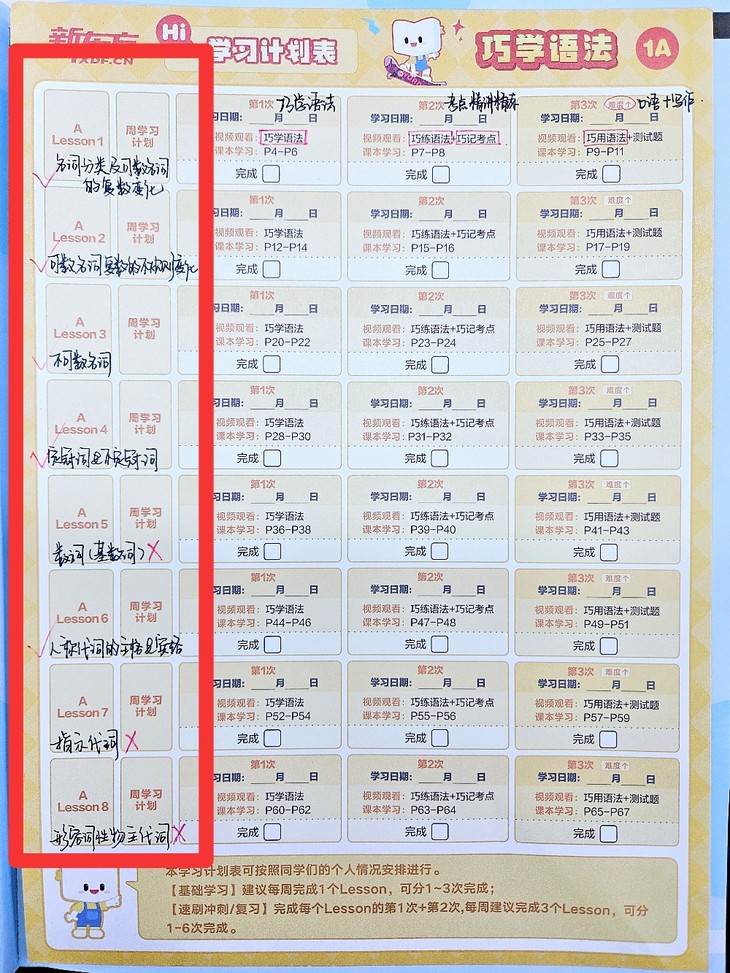 新东方
XDF.CN
Hi
学习计划表
巧学语法
1A
A
Lesson 1
周学习
计划
名词分类及可数名词
的复数变化
第1次 巧学语法
学习日期: 月 日
视频观看: 巧学语法
课本学习: P4-P6
完成
第2次 考点精讲精练
学习日期: 月 日
视频观看: 巧练语法+巧记考点
课本学习: P7-P8
完成
第3次 难度个 口语+写作
学习日期: 月 日
视频观看: 巧用语法+测试题
课本学习: P9-P11
完成
A
Lesson 2
周学习
计划
可数名词复数的不规则变化
第1次
学习日期: 月 日
视频观看: 巧学语法
课本学习: P12-P14
完成
第2次
学习日期: 月 日
视频观看: 巧练语法+巧记考点
课本学习: P15-P16
完成
第3次 难度个
学习日期: 月 日
视频观看: 巧用语法+测试题
课本学习: P17-P19
完成
A
Lesson 3
周学习
计划
不可数名词
第1次
学习日期: 月 日
视频观看: 巧学语法
课本学习: P20-P22
完成
第2次
学习日期: 月 日
视频观看: 巧练语法+巧记考点
课本学习: P23-P24
完成
第3次 难度个
学习日期: 月 日
视频观看: 巧用语法+测试题
课本学习: P25-P27
完成
A
Lesson 4
周学习
计划
定冠词&不定冠词
第1次
学习日期: 月 日
视频观看: 巧学语法
课本学习: P28-P30
完成
第2次
学习日期: 月 日
视频观看: 巧练语法+巧记考点
课本学习: P31-P32
完成
第3次 难度个
学习日期: 月 日
视频观看: 巧用语法+测试题
课本学习: P33-P35
完成
A
Lesson 5
周学习
计划
数词(基数词)
第1次
学习日期: 月 日
视频观看: 巧学语法
课本学习: P36-P38
完成
第2次
学习日期: 月 日
视频观看: 巧练语法+巧记考点
课本学习: P39-P40
完成
第3次 难度个
学习日期: 月 日
视频观看: 巧用语法+测试题
课本学习: P41-P43
完成
A
Lesson 6
周学习
计划
人称代词的主格&宾格
第1次
学习日期: 月 日
视频观看: 巧学语法
课本学习: P44-P46
完成
第2次
学习日期: 月 日
视频观看: 巧练语法+巧记考点
课本学习: P47-P48
完成
第3次 难度个
学习日期: 月 日
视频观看: 巧用语法+测试题
课本学习: P49-P51
完成
A
Lesson 7
周学习
计划
指示代词
第1次
学习日期: 月 日
视频观看: 巧学语法
课本学习: P52-P54
完成
第2次
学习日期: 月 日
视频观看: 巧练语法+巧记考点
课本学习: P55-P56
完成
第3次 难度个
学习日期: 月 日
视频观看: 巧用语法+测试题
课本学习: P57-P59
完成
A
Lesson 8
周学习
计划
形容词性物主代词
第1次
学习日期: 月 日
视频观看: 巧学语法
课本学习: P60-P62
完成
第2次
学习日期: 月 日
视频观看: 巧练语法+巧记考点
课本学习: P63-P64
完成
第3次 难度个
学习日期: 月 日
视频观看: 巧用语法+测试题
课本学习: P65-P67
完成
本学习计划表可按照同学们的个人情况安排进行。
【基础学习】建议每周完成1个Lesson，可分1~3次完成；
【速刷冲刺/复习】完成每个Lesson的第1次+第2次,每周建议完成3个Lesson，可分
1-6次完成。